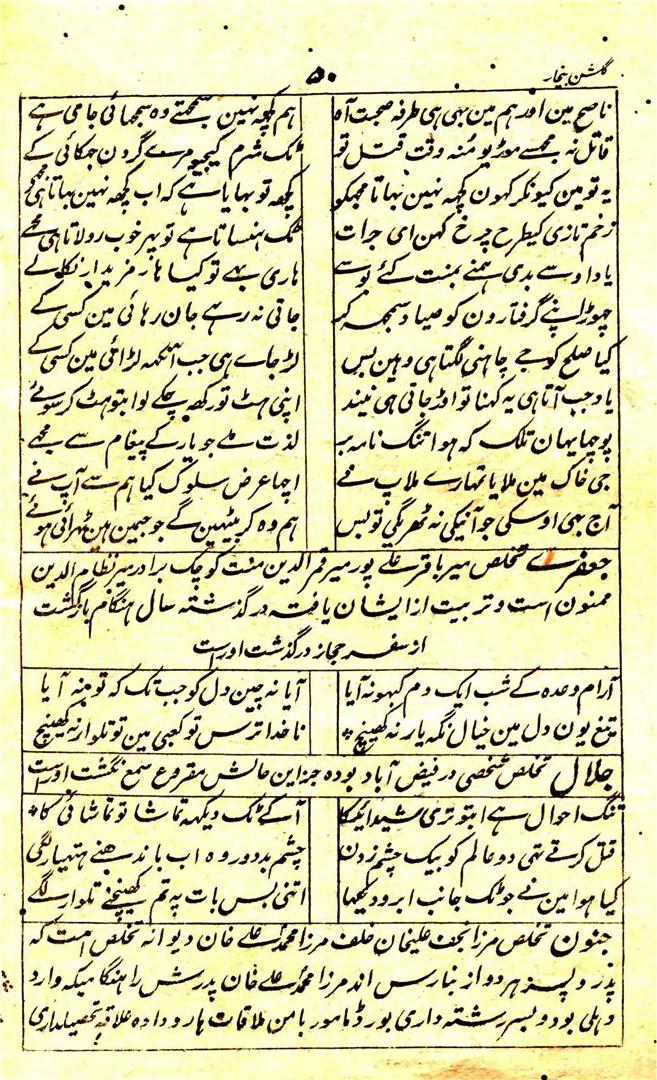 گلشن بیخار
۵۰
ناصح مین اور ہم مین بہی ہی طرفہ صحبت آہ ہم کچھ نہین سمجھتے وہ سمجھائی جامی ہے
قاتل نہ مجھسے موڑیو مُنہ وقت قتل تو ٹک شرم کیجیو مرے گردن جھکائی کے
یہ تو مین کیونکر کہون کچھ نہین بہاتا مجہکو کچھ تو بہایا ہے کہ اب کچھ نہین بہاتا ہی مجھے
زخم تازی کیطرح چرخ کہن ای جرات ٹک ہنساتا ہے تو پہر خوب رولاتا ہی مجھے
یاد اوسے بدی ہمنے بمنت کئے بوسے ہاری بہے تو کیا ہار مزیدار نکالے
چہوڑ اپنے گرفتارون کو صیاد سمجہہ کر جاتی نہ رہے جان رہائی مین کسی کے
کیا صلح کو جی چاہنی لگتا ہی وہین بس لڑ جاے ہی جب آنکہہ لڑائی مین کسی کے
یاد جب آتا ہی یہ کہنا تو اوڑ جاتی ہی نیند اپنی ہٹ تو رکھہ چکے لو ابتو ہٹ کر سوئے
پوچہا یہان تلک کہ ہوا تنگ نامہ بر لذت ملے جو یار کے پیغام سے مجھے
جی خاک مین ملایا تمہارے ملاپ نے اچہا عرض سلوک کیا ہم سے آپ نے
آج بہی اوسکی جو آنیکی نہ ٹھریگی تو بس ہم وہ کر بیٹہین گے جو جیمین ہین ٹہرائی ہوئے
جعفرے تخلص میر باقر علے پور میر قمر الدین منت کوچک برادر میر نظام الدین
ممنون است و تربیت از ایشان یافتہ در گذشتہ سال ہنگام بازگشت
از سفر حجاز درگذشت اوراست
آرام وعدہ کے شب ایک دم کبہو نہ آیا آیا نہ چین دل کو جب تک کہ تو نہ آیا
تیغ یون دل مین خیال نگہ یار نہ کھینچ ناخدا ترس تو کعبی مین تو تلوار نہ کھینچ
جلال تخلص شخصی در فیض آباد بودہ جز این حالش مقروع سمع نگشت اوراست
تنگ احوال ہے ابتو تری شیدائیکا آکے ٹک دیکہہ تماشا تو تماشائی کا
قتل کرتے تہی دو عالم کو بیک چشم زدن چشم بد دور وہ اب باندہنے ہتہیار لگی
کیا ہوا مین نے جو ٹک جانب ابرو دیکہا اتنی بس بات پہ تم کھینچنے تلوار لگے
جنون تخلص مرزا نجف علیخان خلف مرزا محمد علے خان دیوانہ تخلص است کہ
پدر و پسر ہر دو از بنارس اند مرزا محمد علے خان پدرش را ہنگامیکہ وارد
دہلی بود و بسررشتہ داری بورڈ مامور با من ملاقات ہا رو دادہ علاقہ تحصیلداری